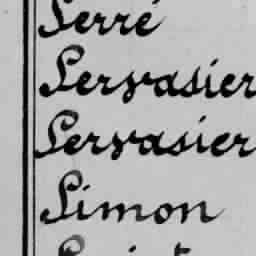 Serré
Servasier
Servasier
Simon